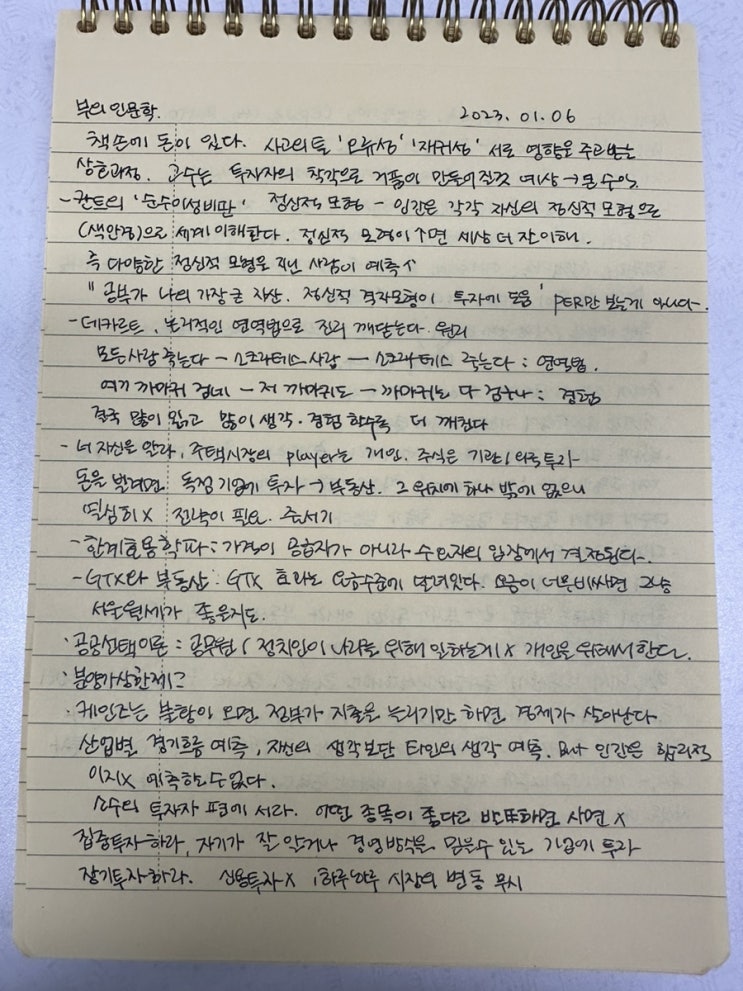 부의 인문학. 2023. 01. 06
책속에 돈이 있다. 사고의 틀 '오류성' '재귀성' 서로 영향을 주고받는
상호과정. 고수는 투자자의 착각으로 거품이 만들어질것 예상 → 큰 수익
- 칸트의 '순수이성비판' 정신적 모형 - 인간은 각각 자신의 정신적 모형으로
(색안경)으로 세계 이해한다. 정신적 모형이 ↑면 세상 더 잘이해.
즉 다양한 정신적 모형을 지닌 사람이 예측↑
" 공부가 나의 가장 큰 자산. 정신적 격자모형이 투자에 도움' PER만 보는게 아니다.
- 데카르트, 논리적인 연역법으로 진리 깨닫는다. 원리
모든사람 죽는다 - 소크라테스 사람 - 소크라테스 죽는다 : 연역법.
여기 까마귀 검네 - 저 까마귀도 - 까마귀는 다 검구나 : 경험
결국 많이 읽고 많이 생각·경험 할수록 더 깨친다
- 너 자신을 알라, 주택시장의 player는 개인. 주식은 기관/외국투자
돈을 벌려면 독점기업에 투자 → 부동산. 그 위치에 하나 밖에 없으니
열심히X 전략이 필요. 줄서기
- 한계효용학파 : 가격이 공급자가 아니라 수요자의 입장에서 결정된다.
- GTX와 부동산 : GTX 효과는 요금수준에 달려있다. 요금이 너무비싸면 그냥
서울월세가 좋을지도.
· 공공선택이론 : 공무원/정치인이 나라를 위해 일하는게X 개인을 위해서 한다.
· 분양가상한제
· 케인즈는 불황이 오면 정부가 지출을 늘리기만 하면 경제가 살아난다
산업별 경기흐름 예측, 자신의 생각보단 타인의 생각 예측. But 인간은 합리적
이지X 예측할수없다.
소수의 투자자 편에 서라. 어떤 종목이 좋다고 반포하면 사면 X
집중투자하라, 자기가 잘 알거나 경영방식을 믿을수 있는 기업에 투자
장기투자하라. 신용투자X , 하루하루 시장의 변동 무시